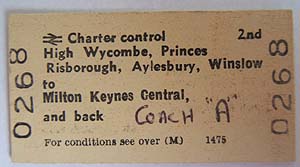 Charter control 2nd
High Wycombe, Princes
Risborough, Aylesbury, Winslow
to
Milton Keynes Central,
and back COACH "A"
For conditions see over (M) 1475
0268
0268